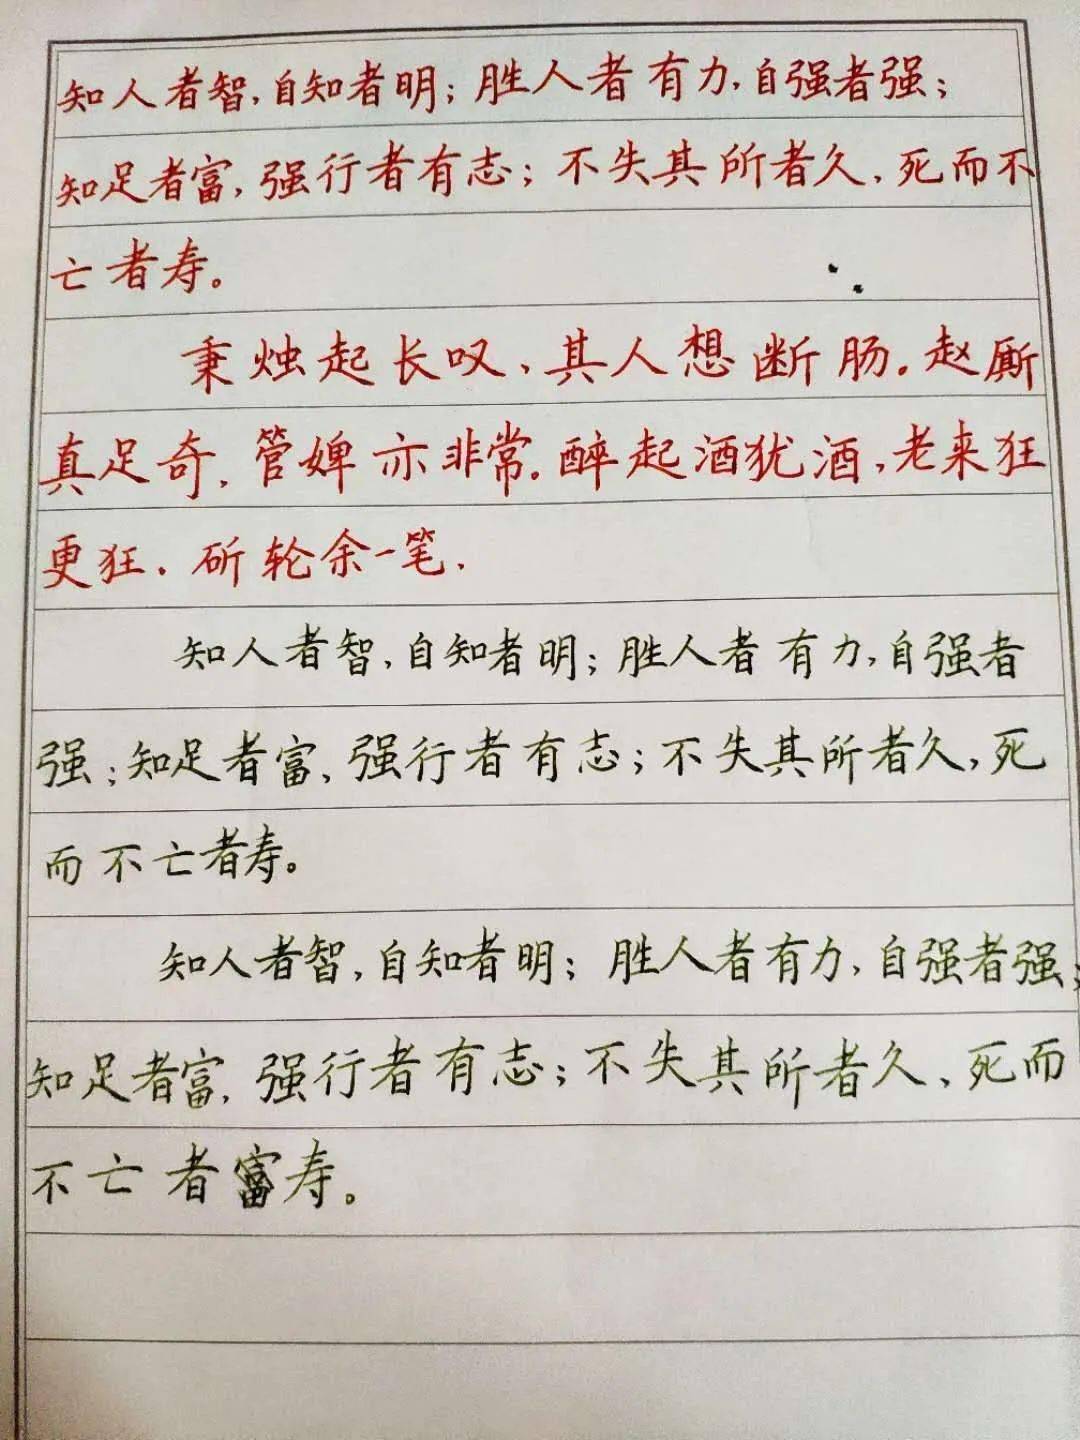 知人者智,自知者明；胜人者有力,自强者强；
知足者富,强行者有志；不失其所者久、死而不
亡者寿。
秉烛起长叹、其人想断肠。赵厮
真足奇,管婢亦非常.醉起酒犹酒,老来狂
更狂.斫轮余一笔.
知人者智,自知者明；胜人者有力,自强者
强；知足者富,强行者有志；不失其所者久,死
而不亡者寿。
知人者智,自知者明；胜人者有力,自强者强；
知足者富,强行者有志；不失其所者久、死而
不亡者寿。